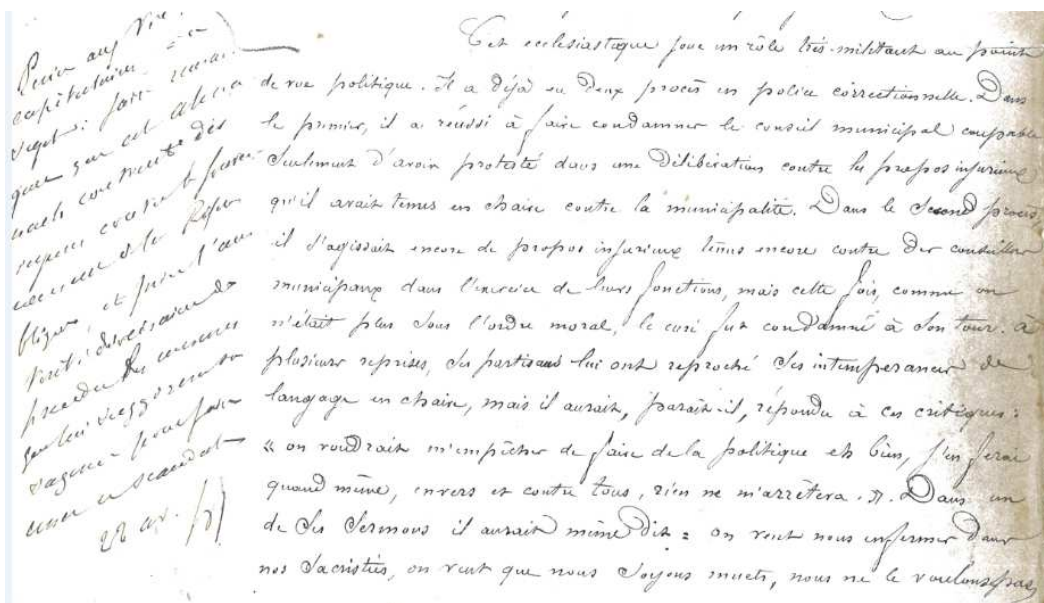 Ecrire aux Vic.
capitulaires
sujet : faire remar-
quer que cet
requiert contre le gouver-
nement de la Répu-
blique, et prier l'au-
torité diocésaine de
prendre les mesures
que lui suggérera sa
sagesse pour faire
cesser ce scandale
22 av.
Cet ecclésiastique joue un rôle très-militant au point
de vue politique. Il a déjà eu deux procès en police correctionnelle. Dans
le premier, il a réussi à faire condamner le conseil municipal coupable
seulement d'avoir protesté dans une délibération contre les propos injurieux
qu'il avait tenus en chaire contre la municipalité. Dans le second procès,
il s'agissait encore de propos injurieux tenus encore contre des conseillers
municipaux dans l'exercice de leurs fonctions, mais cette fois, comme on
n'était plus sous l'ordre moral, le curé fut condamné à son tour. à
plusieurs reprises, ses partisans lui ont reproché ses intempérances de
langage en chaire, mais il aurait, paraît-il, répondu à ces critiques :
« on voudrait m'empêcher de faire de la politique eh bien, j'en ferai
quand même, envers et contre tous, rien ne m'arrêtera. ». Dans un
de ses sermons il aurait même dit : on veut nous enfermer dans
nos sacristies, on veut que nous soyons muets, nous ne le voulons pas,